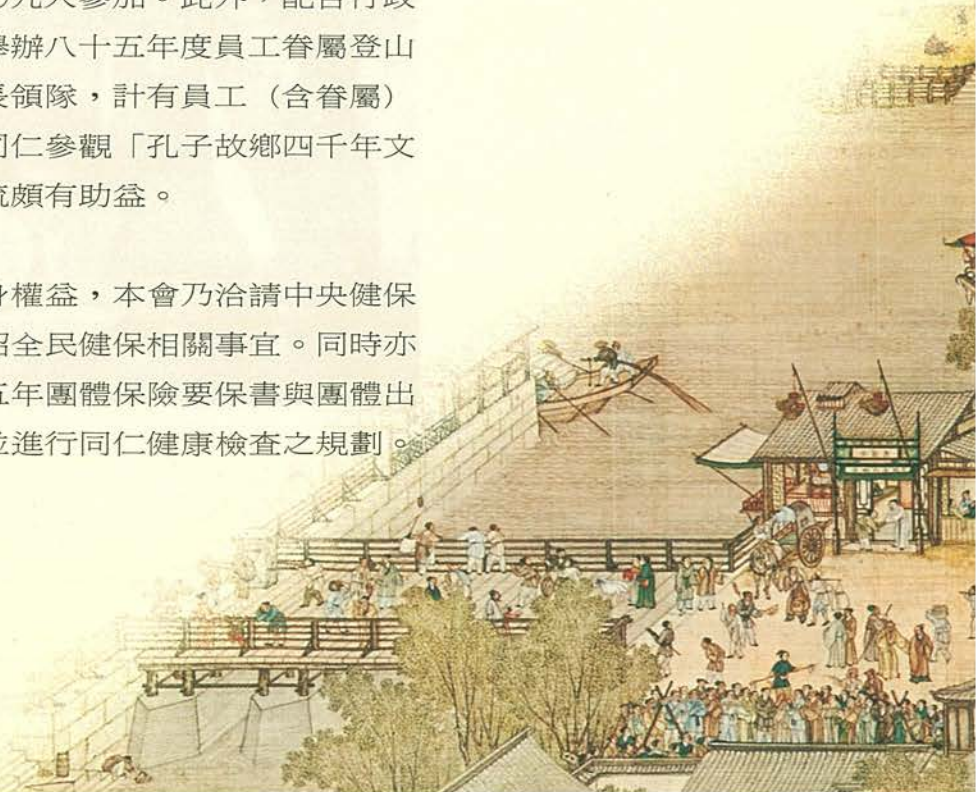 九人參加。此外，配合行政
舉辦八十五年度員工眷屬登山
長領隊，計有員工（含眷屬）
同仁參觀「孔子故鄉四千年文
流頗有助益。
身權益，本會乃洽請中央健保
紹全民健保相關事宜。同時亦
五年團體保險要保書與團體出
並進行同仁健康檢查之規劃。